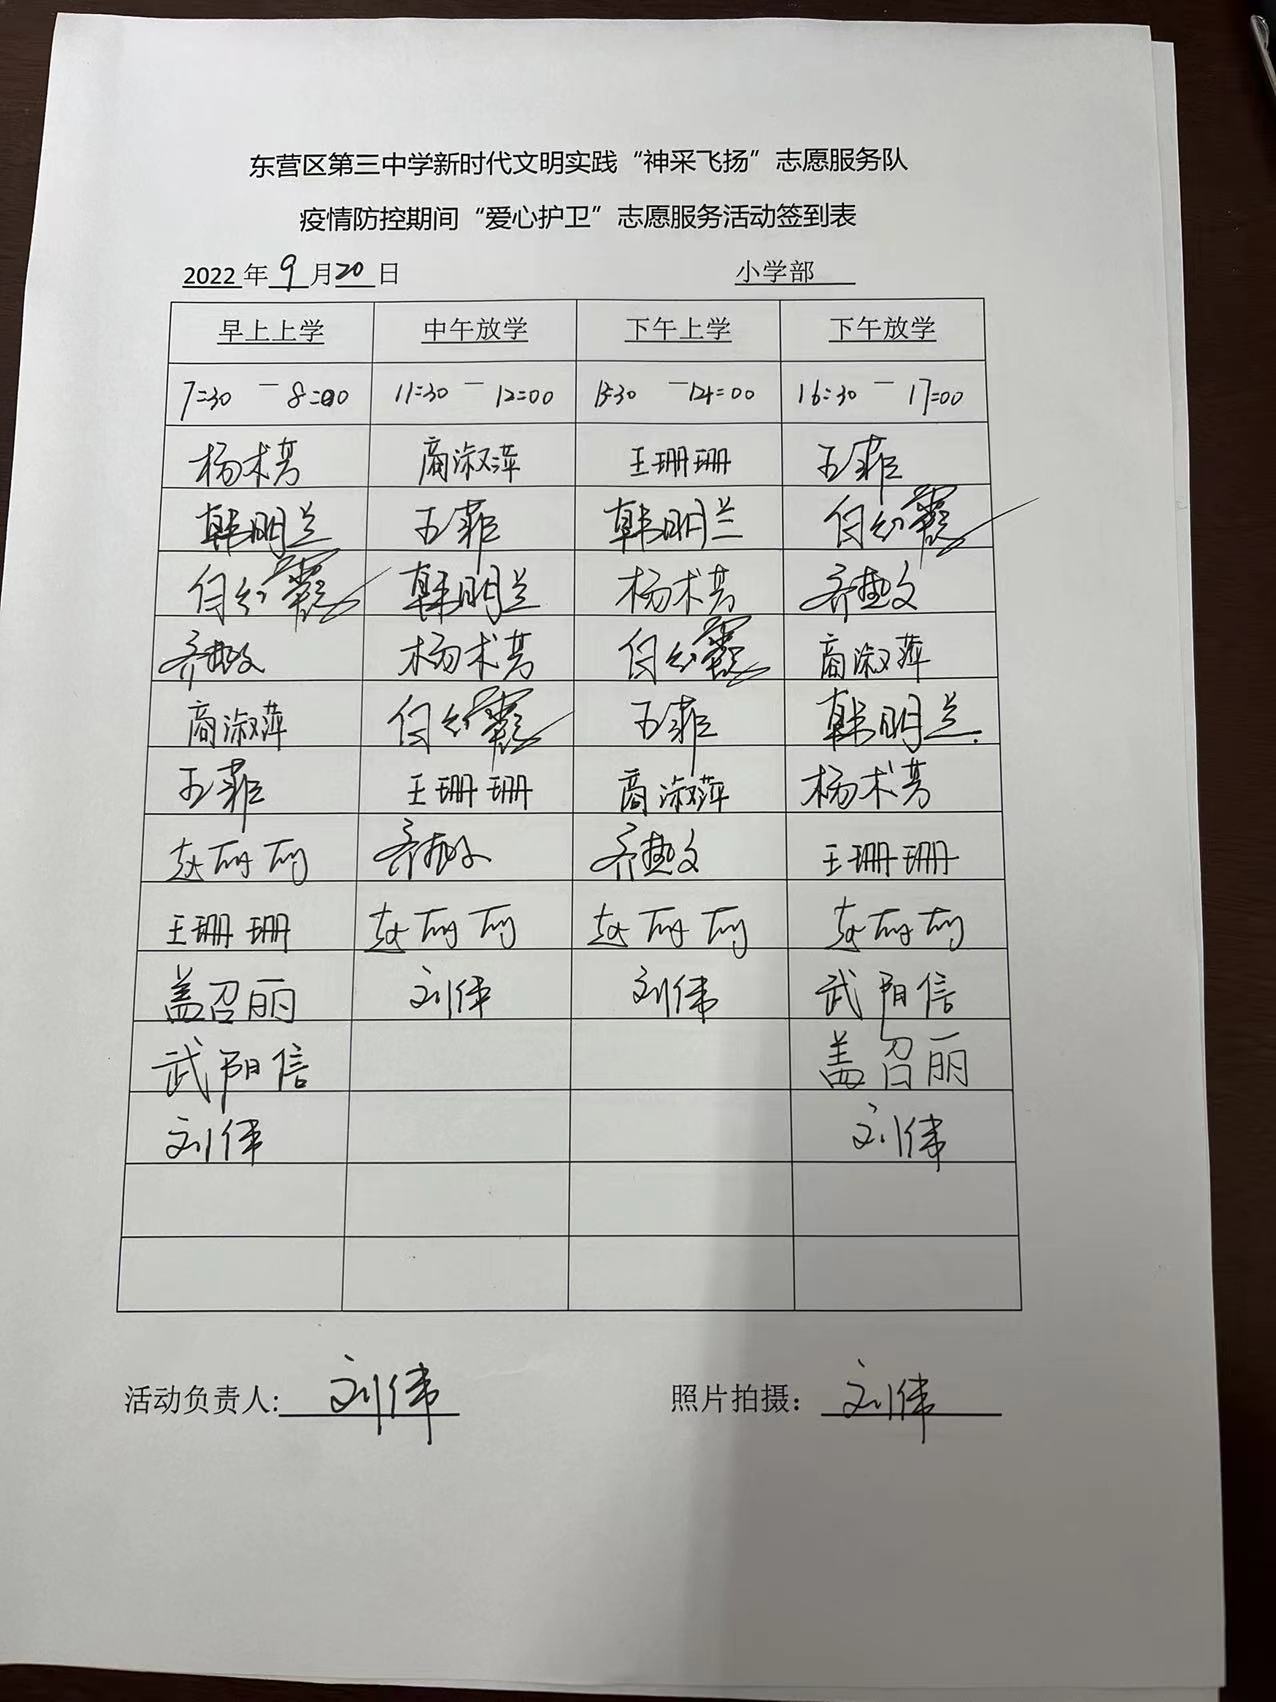 东营区第三中学新时代文明实践“神采飞扬”志愿服务队
疫情防控期间“爱心护卫”志愿服务活动签到表
2022年9月20日 小学部
早上上学 中午放学 下午上学 下午放学
7:30 — 8:00 11:30 — 12:00 13:30 — 14:00 16:30 — 17:00
杨术芳 商淑萍 王珊珊 王菲
韩明兰 王菲 韩明兰
韩明兰 杨术芳
杨术芳 商淑萍
商淑萍 王菲 韩明兰
王菲 王珊珊 商淑萍 杨术芳
王珊珊
王珊珊
盖召丽 刘伟 刘伟 武阳信
武阳信 盖召丽
刘伟 刘伟
活动负责人:刘伟 照片拍摄：刘伟